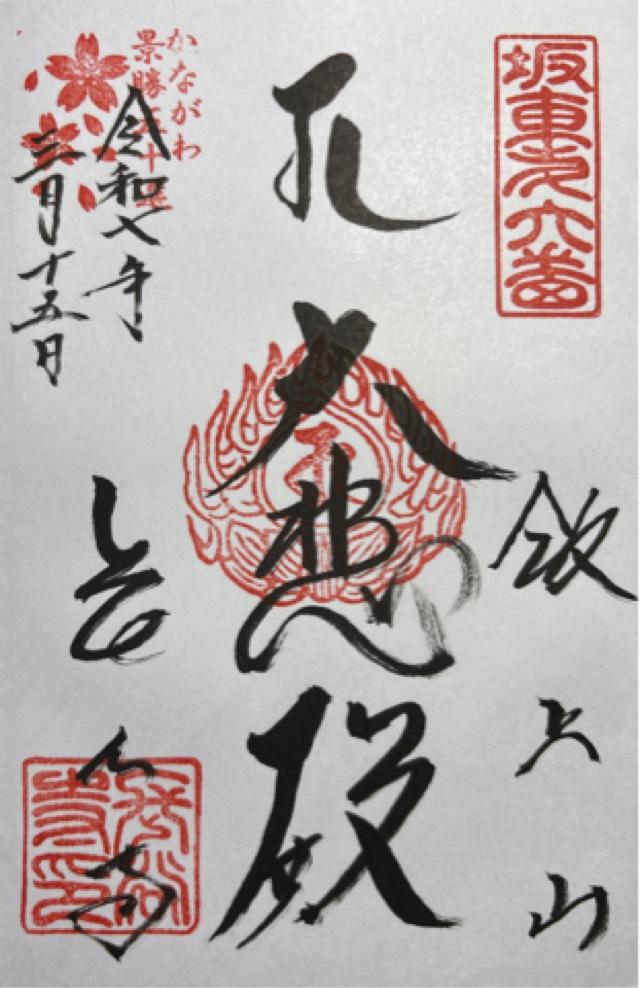 坂東第六番
飯上山
大悲殿
長谷寺
令和七年
三月十五日
かながわ
景勝五十選